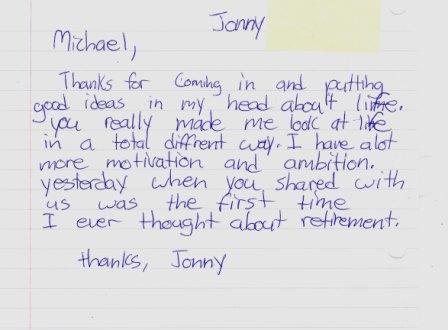 Jonny
Michael,
Thanks for Coming in and putting
good ideas in my head about life.
you really made me look at life
in a total diffrent way. I have alot
more motivation and ambition.
yesterday when you shared with
us was the first time
I ever thought about retirement.
thanks, Jonny